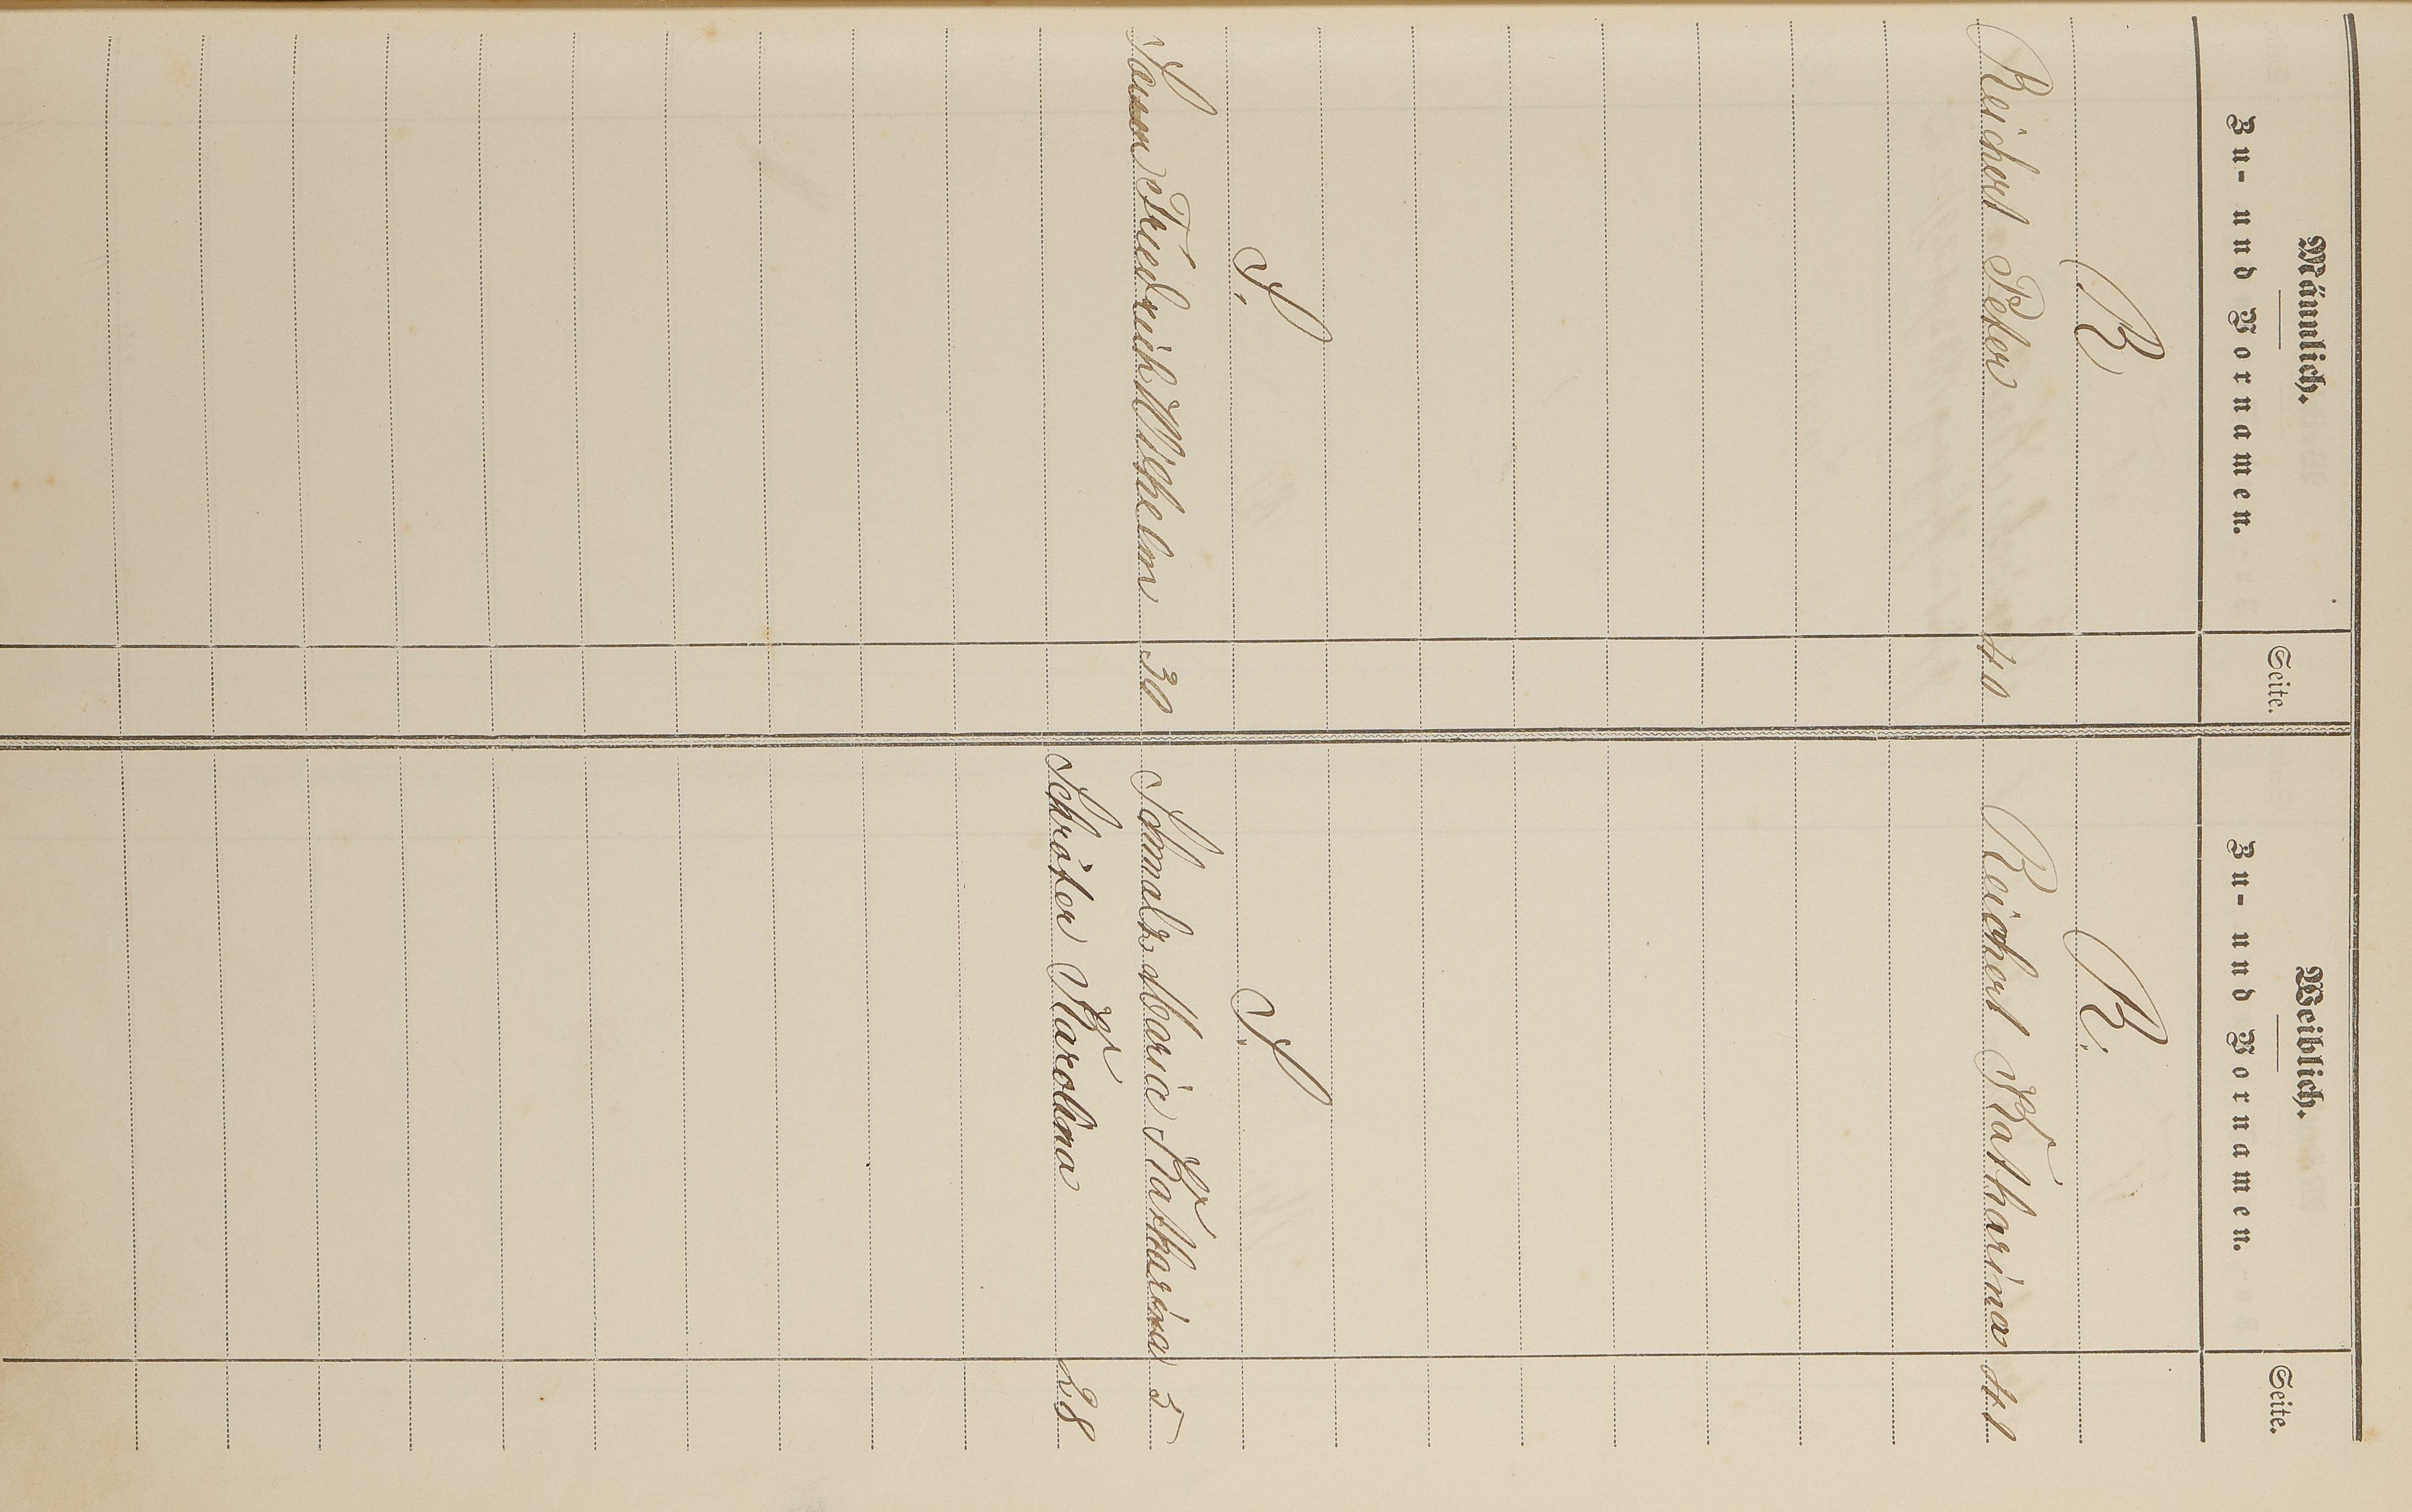 Männlich.
Zu- und Vornamen.
Seite.
Weiblich.
Zu- und Vornamen.
Seite.
R R.
Reichert Peter 40 Reichert Katharina 41
S. S.
Friedrich Wilhelm 30 Schmalz Maria Katharina 5
Schröter Karolina 28